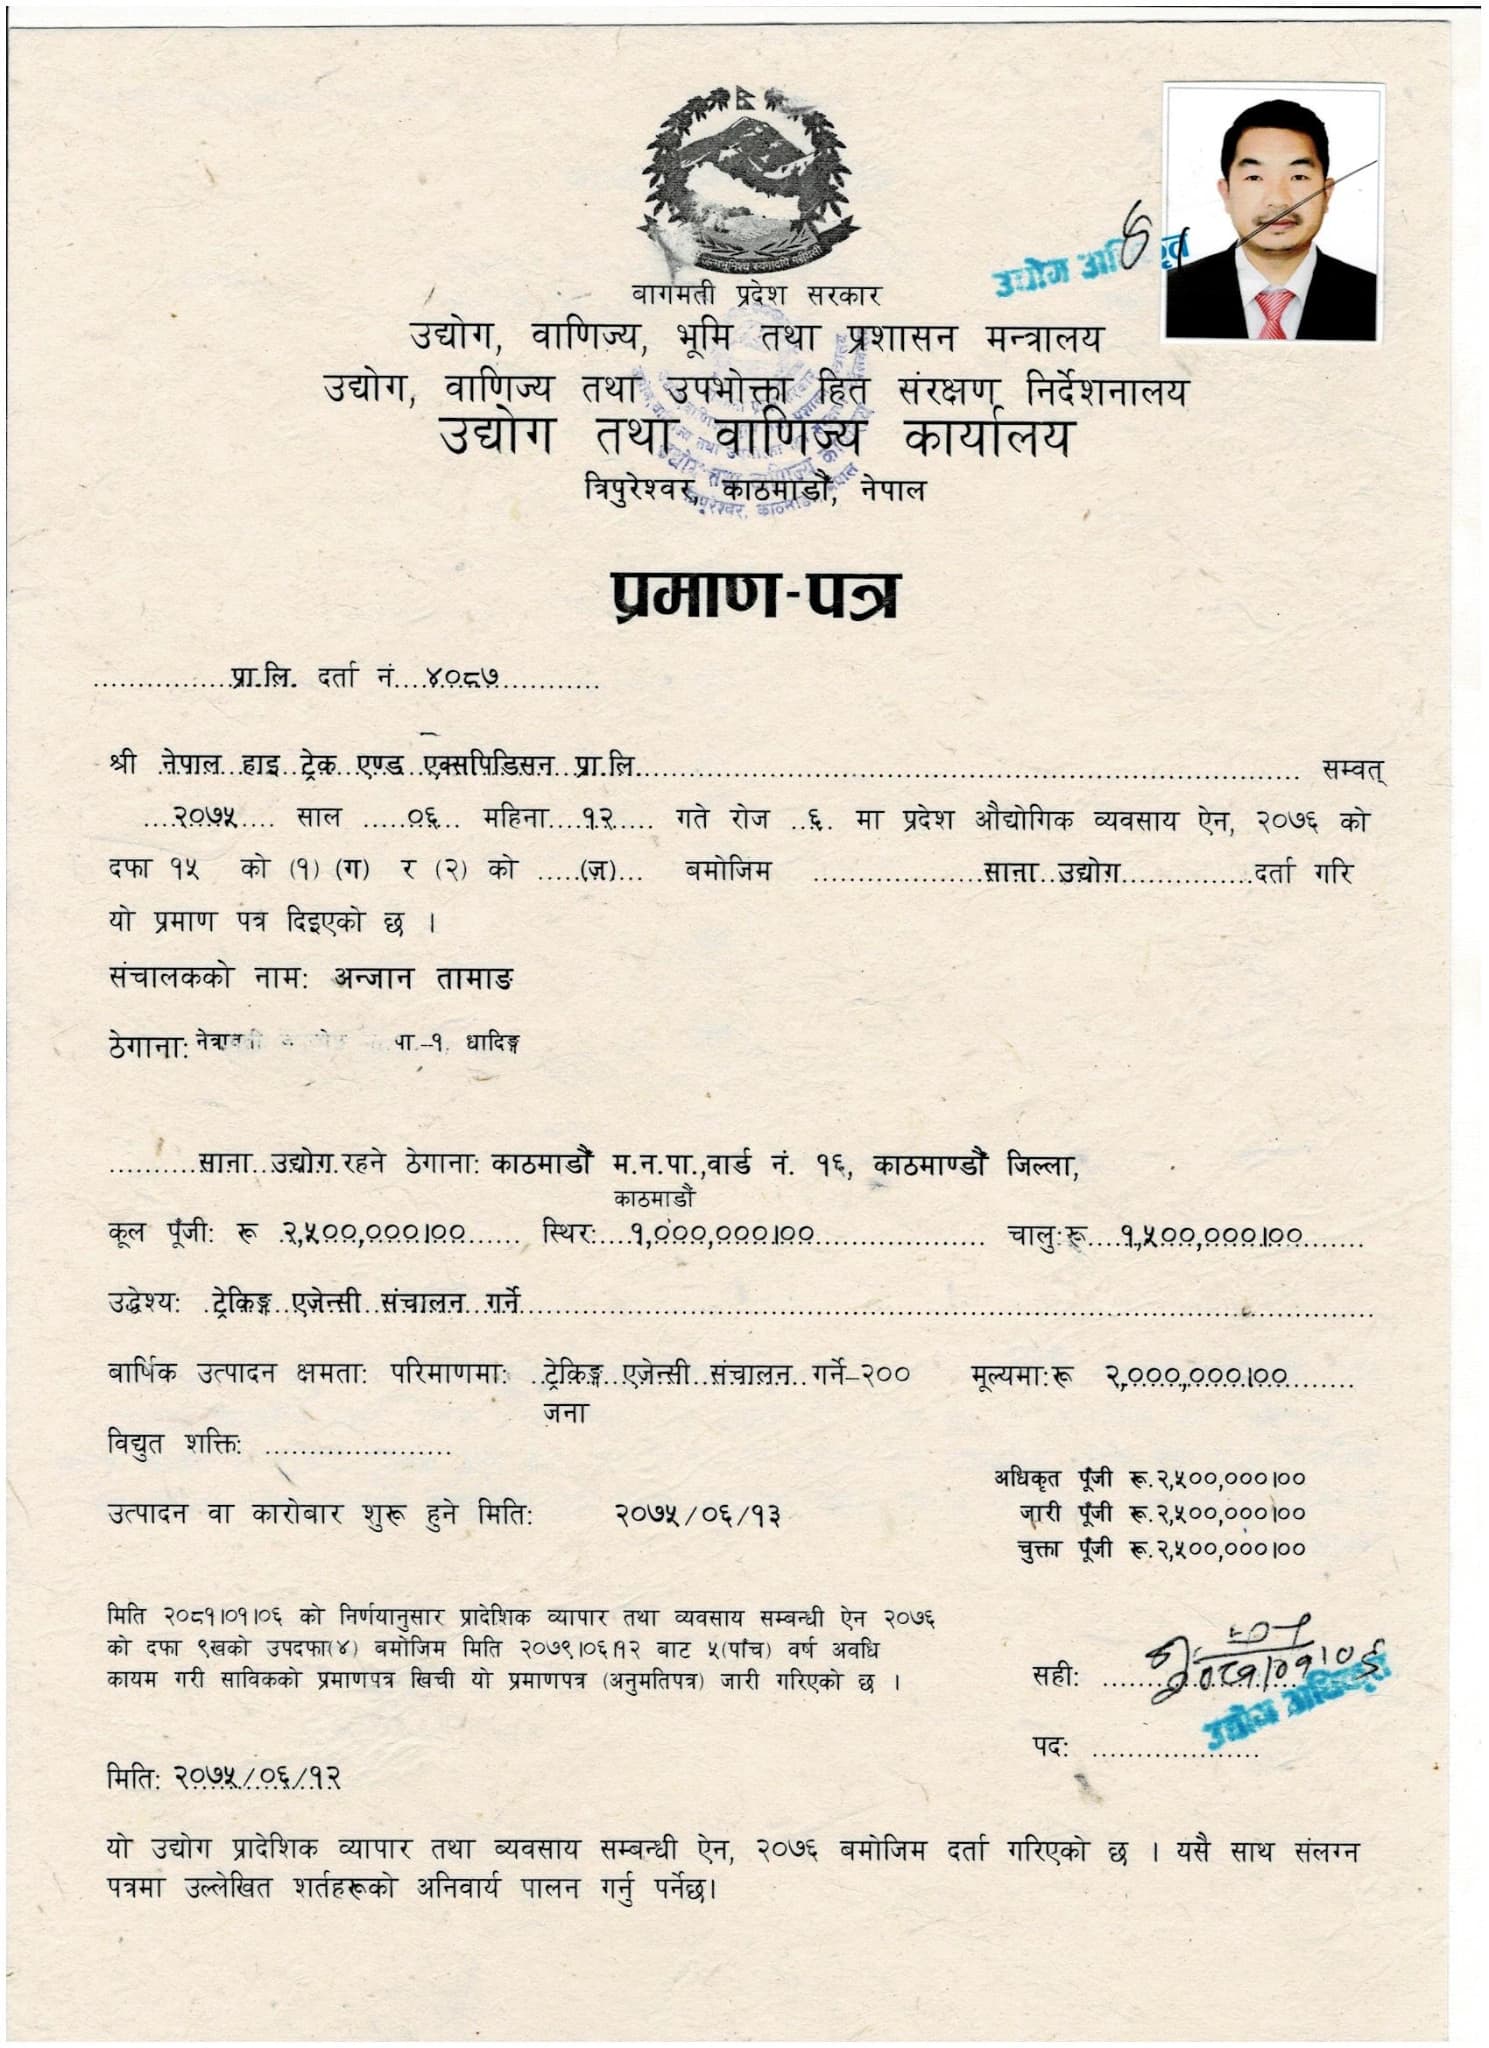 बागमती प्रदेश सरकार
उद्योग, वाणिज्य, भूमि तथा प्रशासन मन्त्रालय
उद्योग, वाणिज्य तथा उपभोक्ता हित संरक्षण निर्देशनालय
उद्योग तथा वाणिज्य कार्यालय
त्रिपुरेश्वर, काठमाडौं, नेपाल
उद्योग अधिकृत
प्रमाण-पत्र
................प्रा.लि. दर्ता नं....४०८७............
श्री नेपाल हाइ ट्रेक एण्ड एक्सपिडिसन प्रा.लि............................................................ सम्वत्
...२०७५.... साल .....०६... महिना....१२..... गते रोज ..६. मा प्रदेश औद्योगिक व्यवसाय ऐन, २०७६ को
दफा १५ को (१) (ग) र (२) को .....(ज)... बमोजिम ....................साना उद्योग...............दर्ता गरि
यो प्रमाण पत्र दिइएको छ ।
संचालकको नाम: अन्जान तामाङ
ठेगाना: पा.-१, धादिङ्ग
..........साना उद्योग रहने ठेगाना: काठमाडौं म.न.पा.,वार्ड नं. १६, काठमाण्डौं जिल्ला,
काठमाडौं
कूल पूँजी: रू २,५००,०००।००...... स्थिर:....१,०००,०००।००.................... चालु:रू....१,५००,०००।००.......
उद्धेश्य: .ट्रेकिङ्ग एजेन्सी संचालन गर्ने....................................................................
वार्षिक उत्पादन क्षमता: परिमाणमा: ..ट्रेकिङ्ग एजेन्सी संचालन गर्ने-२०० मूल्यमा:रू २,०००,०००।००........
जना
विद्युत शक्ति: .....................
अधिकृत पूँजी रू.२,५००,०००।००
उत्पादन वा कारोबार शुरू हुने मिति: २०७५/०६/१३ जारी पूँजी रू.२,५००,०००।००
चुक्ता पूँजी रू.२,५००,०००।००
मिति २०८१।०१।०६ को निर्णयानुसार प्रादेशिक व्यापार तथा व्यवसाय सम्बन्धी ऐन २०७६
को दफा ९खको उपदफा(४) बमोजिम मिति २०७९।०६।१२ बाट ५(पांच) वर्ष अवधि
कायम गरी साविकको प्रमाणपत्र खिची यो प्रमाणपत्र (अनुमतिपत्र) जारी गरिएको छ ।
सही: २०८१।०१।०६
उद्योग अधिकृत
पद: ...................
मिति: २०७५/०६/१२
यो उद्योग प्रादेशिक व्यापार तथा ब्यवसाय सम्बन्धी ऐन, २०७६ बमोजिम दर्ता गरिएको छ । यसै साथ संलग्न
पत्रमा उल्लेखित शर्तहरूको अनिवार्य पालन गर्नु पर्नेछ।